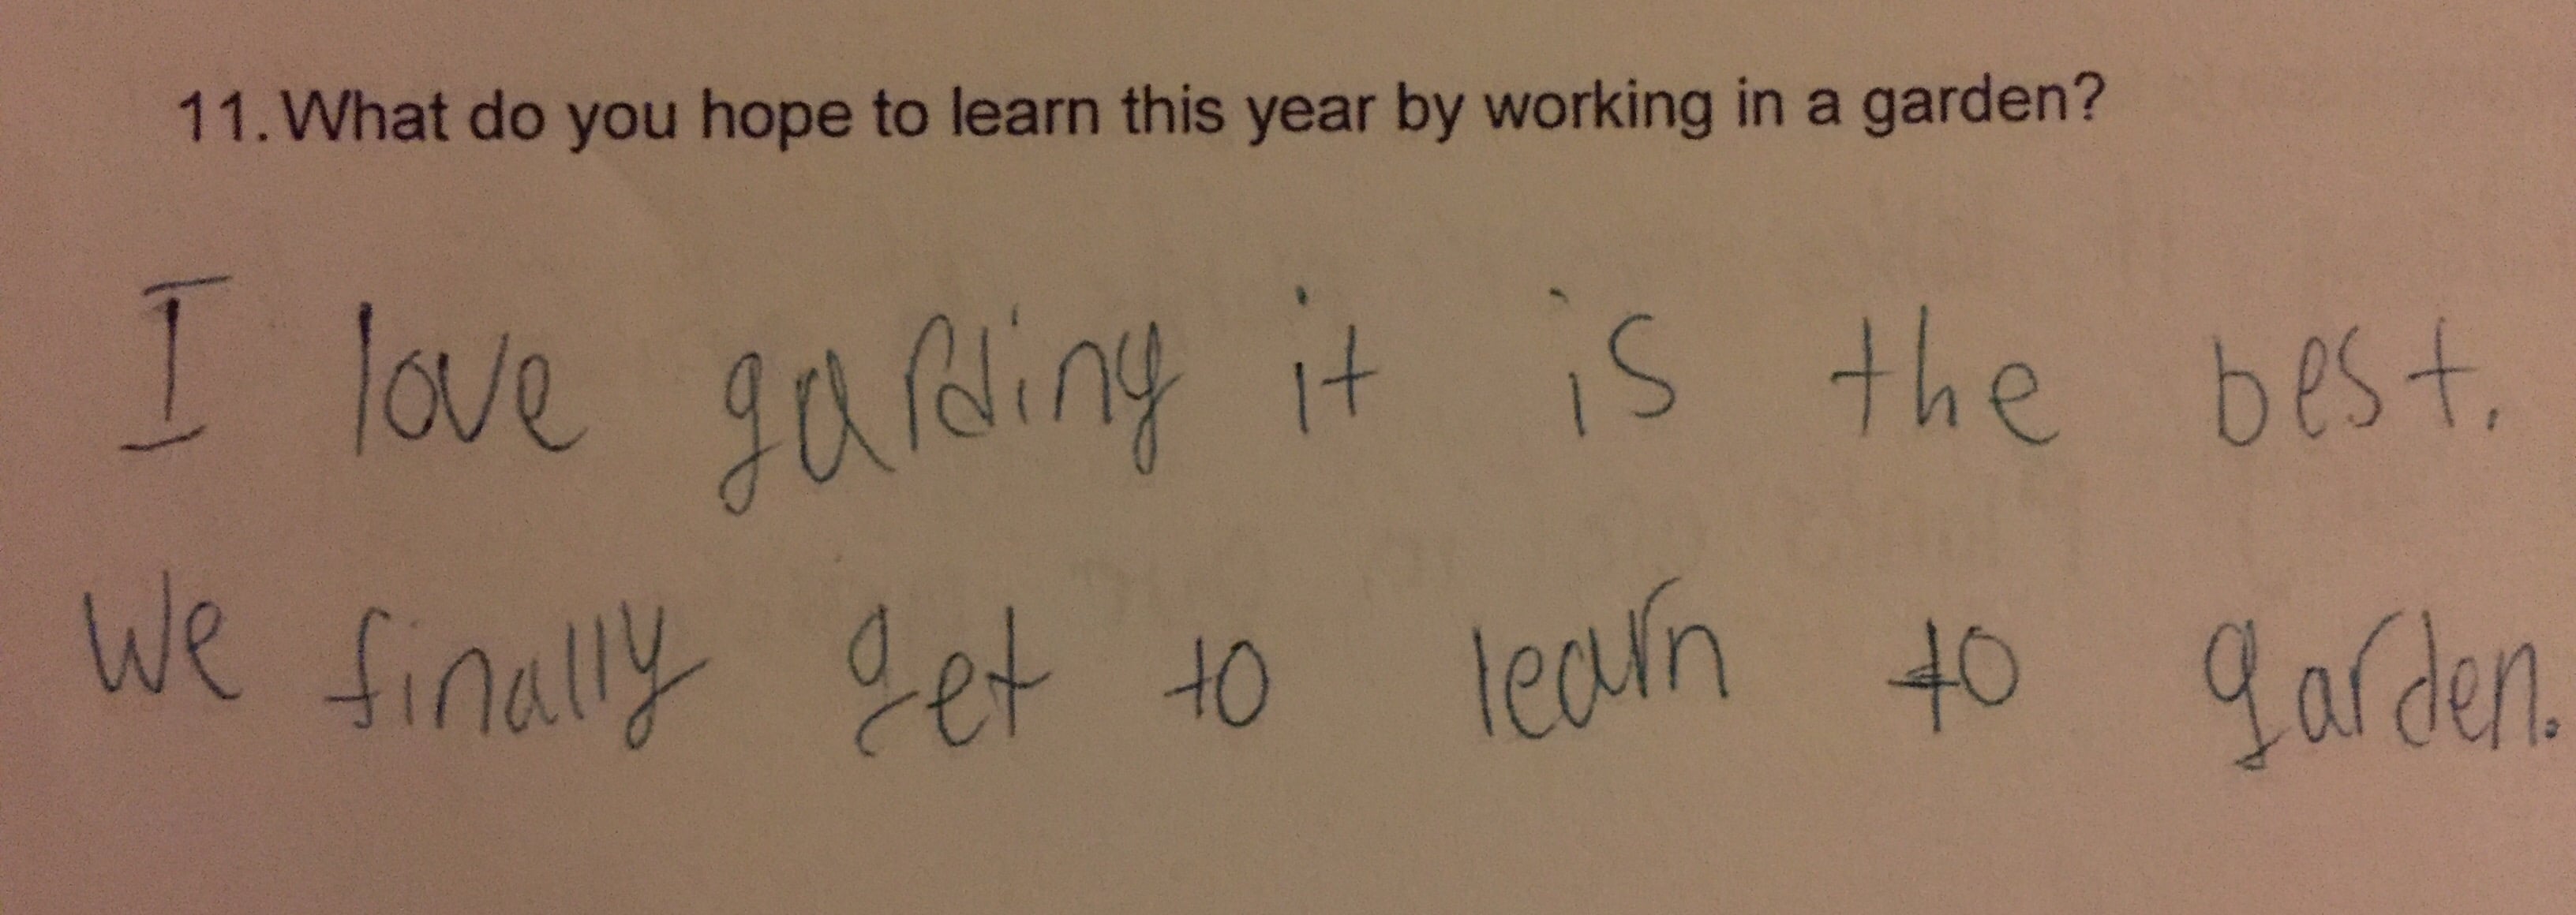 11. What do you hope to learn this year by working in a garden?
I love garding it is the best.
We finally get to learn to garden.